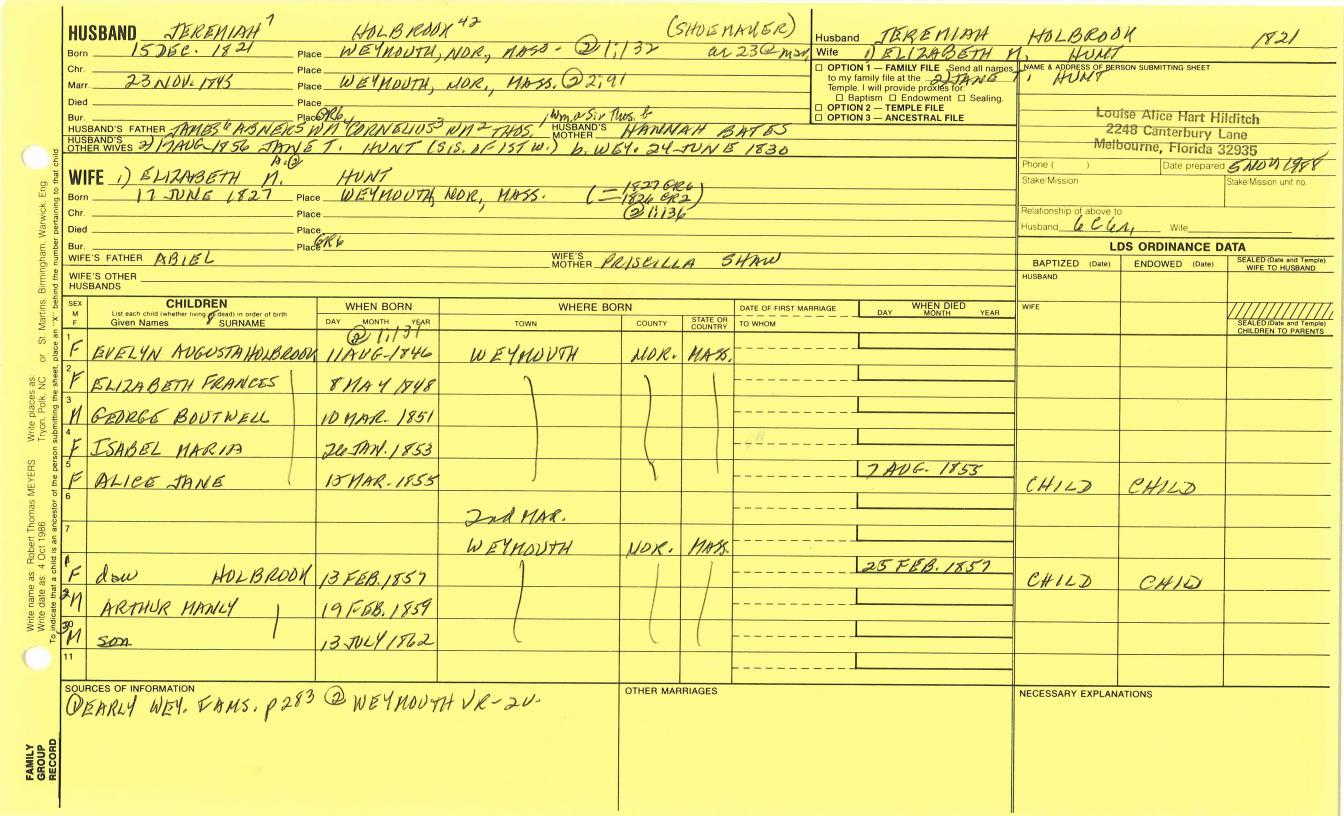 HUSBAND JEREMIAH 7 HOLBROOK 42 (SHOEMAKER)
Born 15 DEC. 1821 Place WEYMOUTH, NOR, MASS - ② 1;132 ae 23 @ mar.
Chr. Place
Marr 23 NOV. 1845 Place WEYMOUTH, NOR., MASS. ② 2;91
Died Place
Bur. Place GR6
HUSBAND'S FATHER JAMES 6 ABNER 5 WM 4 CORNELIUS 3 WM 2 THOS. 1 Wm. or Sir Thos. b HUSBAND'S MOTHER HANNAH BATES
HUSBAND'S OTHER WIVES 2) 17 AUG 1856 JANE T. HUNT (SIS. OF 1ST W.) b. WEY. 24 JUNE 1830
Husband JEREMIAH HOLBROOK 1821
Wife 1) ELIZABETH M. HUNT
2) JANE T. HUNT
☐ OPTION 1 — FAMILY FILE Send all names
to my family file at the
Temple. I will provide proxies for
☐ Baptism ☐ Endowment ☐ Sealing.
☐ OPTION 2 — TEMPLE FILE
☐ OPTION 3 — ANCESTRAL FILE
NAME & ADDRESS OF PERSON SUBMITTING SHEET
Louise Alice Hart Hilditch
2248 Canterbury Lane
Melbourne, Florida 32935
Phone ( ) Date prepared 5 NOV 1988
Stake/Mission Stake/Mission unit no.
Relationship of above to
Husband 6C6R, Wife
WIFE 1) ELIZABETH M. HUNT
Born 17 JUNE 1827 Place WEYMOUTH, NOR, MASS. (= 1827 GR6
= 1826 GR2)
② 1;136
Chr. Place
Died Place
Bur. Place GR6
WIFE'S FATHER ABIEL WIFE'S MOTHER PRISCILLA SHAW
WIFE'S OTHER HUSBANDS
LDS ORDINANCE DATA
BAPTIZED (Date) ENDOWED (Date) SEALED (Date and Temple) WIFE TO HUSBAND
HUSBAND
WIFE
SEALED (Date and Temple) CHILDREN TO PARENTS
SEX M F CHILDREN List each child (whether living or dead) in order of birth Given Names SURNAME 8
WHEN BORN DAY MONTH YEAR WHERE BORN TOWN COUNTY STATE OR COUNTRY DATE OF FIRST MARRIAGE TO WHOM WHEN DIED DAY MONTH YEAR
② 1;131
1 F EVELYN AUGUSTA HOLBROOK 11 AUG. 1846 WEYMOUTH NOR. MASS.
2 F ELIZABETH FRANCES 8 MAY 1848
3 M GEORGE BOUTWELL 10 MAR. 1851
4 F ISABEL MARIA 26 JAN. 1853
5 F ALICE JANE 15 MAR. 1855 7 AUG. 1855 CHILD CHILD
6 2nd MAR.
7 WEYMOUTH NOR. MASS.
1 F daw HOLBROOK 13 FEB. 1857 25 FEB. 1857 CHILD CHILD
2 M ARTHUR MANLY 19 FEB. 1859
3 M son 13 JULY 1862
11
SOURCES OF INFORMATION
① EARLY WEY. FAMS. p283 ② WEYMOUTH VR-2v.
OTHER MARRIAGES
NECESSARY EXPLANATIONS
Write name as: Robert Thomas MEYERS Write places as: Tryon, Polk, NC or St. Martins, Birmingham, Warwick, Eng.
Write date as: 4 Oct 1986
To indicate that a child is an ancestor of the person submitting the sheet, place an "X" behind the number pertaining to that child
FAMILY GROUP RECORD